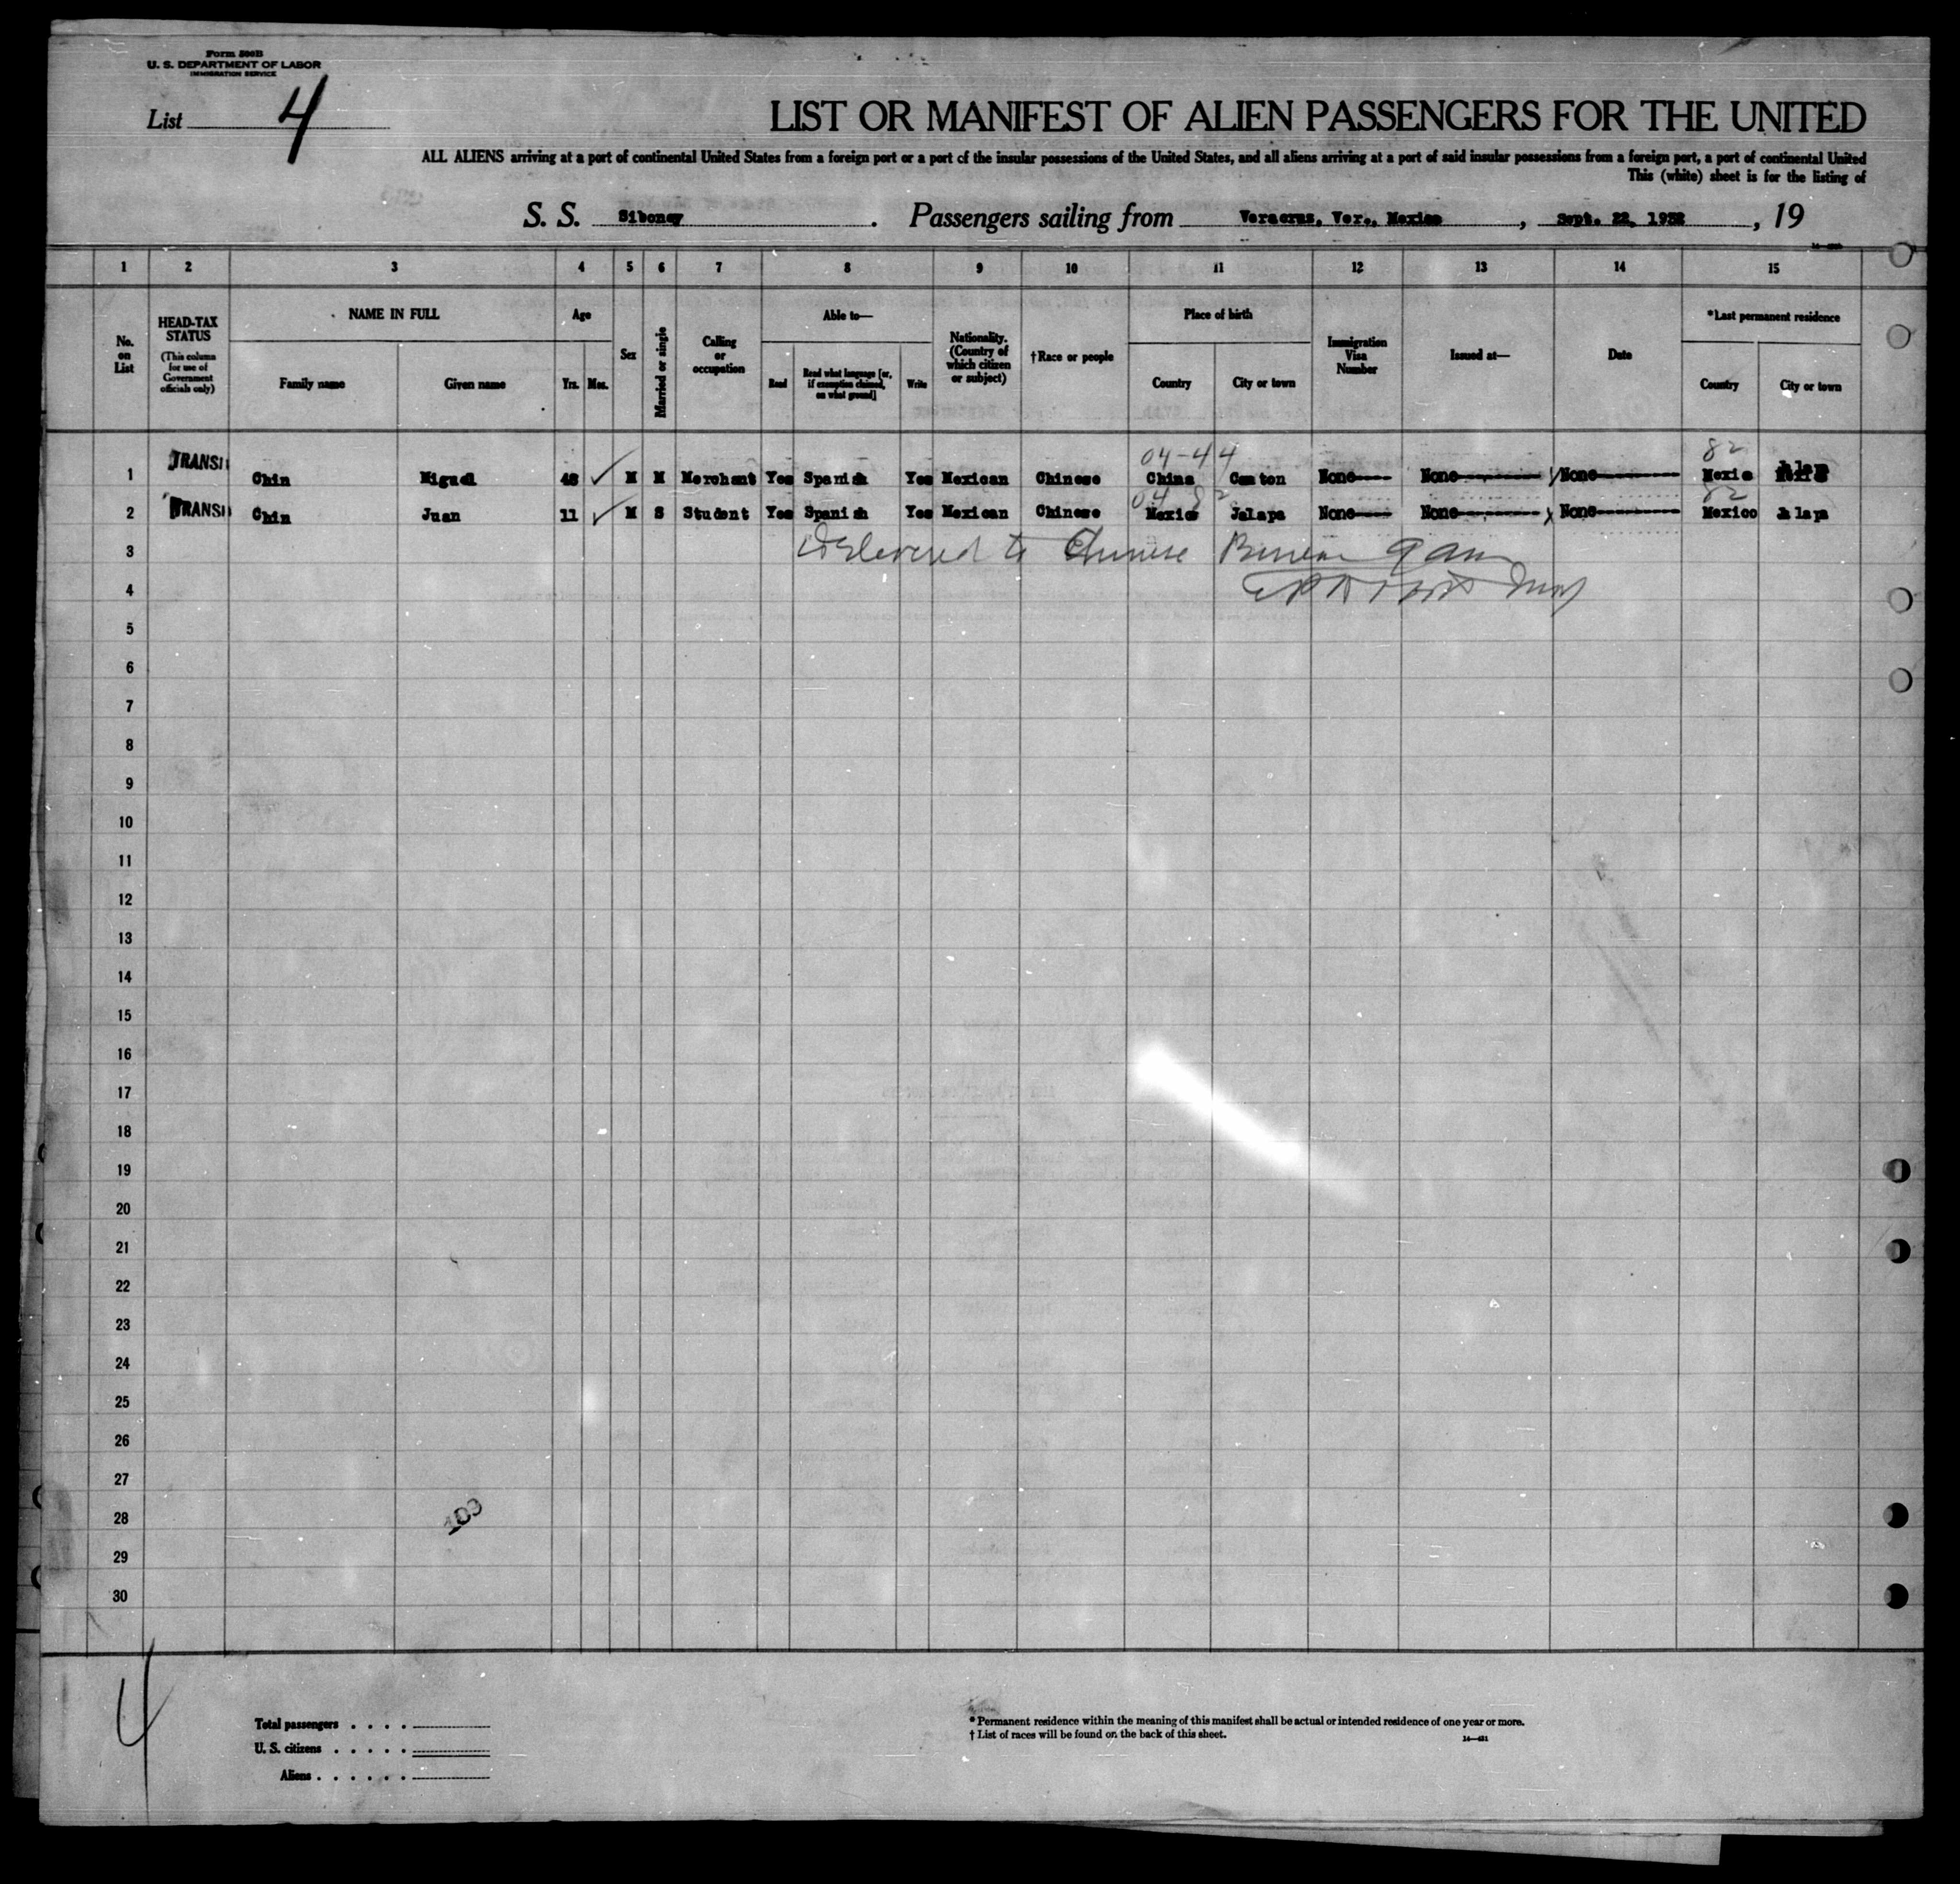 Form 500B
U. S. DEPARTMENT OF LABOR
IMMIGRATION SERVICE
List 4
LIST OR MANIFEST OF ALIEN PASSENGERS FOR THE UNITED
ALL ALIENS arriving at a port of continental United States from a foreign port or a port of the insular possessions of the United States, and all aliens arriving at a port of said insular possessions from a foreign port, a port of continental United
This (white) sheet is for the listing of
S. S. Siboney. Passengers sailing from Veracruz, Ver., Mexico, Sept. 22, 1932, 19
1 2 3 4 5 6 7 8 9 10 11 12 13 14 15
No. on List
HEAD-TAX STATUS (This column for use of Government officials only)
NAME IN FULL
Family name Given name
Age
Yrs. Mos.
Sex
Married or single
Calling or occupation
Able to—
Read Read what language [or, if exemption claimed, on what ground] Write
Nationality. (Country of which citizen or subject)
†Race or people
Place of birth
Country City or town
Immigration Visa Number
Issued at—
Date
*Last permanent residence
Country City or town
04-44 82
1 TRANSI Chin Miguel 48 M M Merchant Yes Spanish Yes Mexican Chinese China Canton None None None Mexico Jalapa
04 82 82
2 TRANSI Chin Juan 11 M S Student Yes Spanish Yes Mexican Chinese Mexico Jalapa None None None Mexico Jalapa
3 Delivered to Chinese Bureau 9 am
4
5
6
7
8
9
10
11
12
13
14
15
16
17
18
19
20
21
22
23
24
25
26
27
28
29
30
4
Total passengers . . . .
U. S. citizens . . . . .
Aliens . . . . . .
* Permanent residence within the meaning of this manifest shall be actual or intended residence of one year or more.
† List of races will be found on the back of this sheet.
14—431